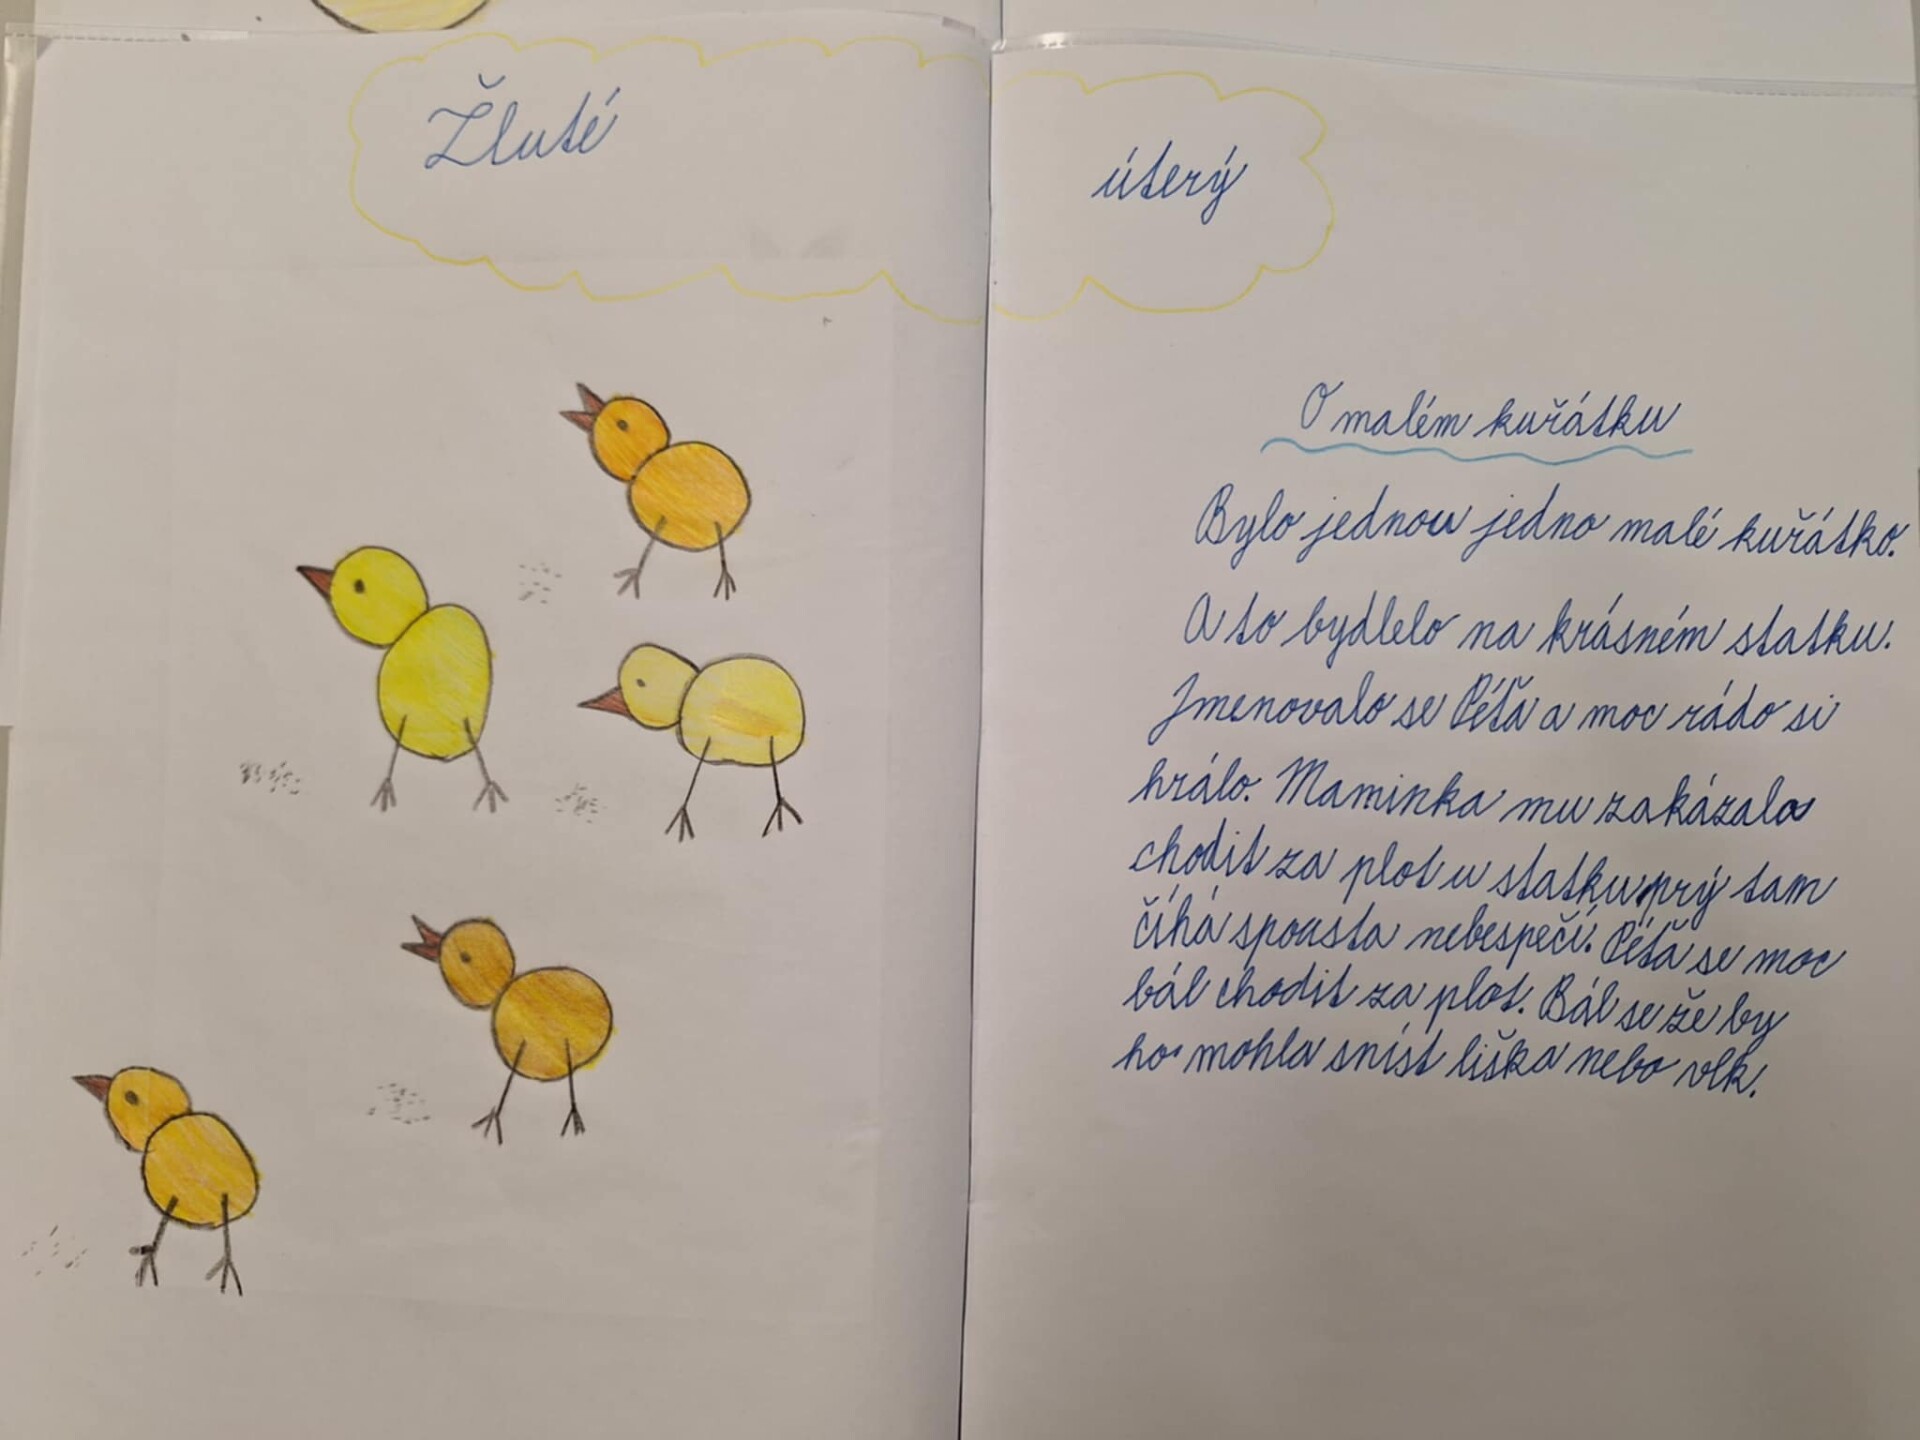 Žluté
úterý
O malém kuřátku
Bylo jednou jedno malé kuřátko.
A to bydlelo na krásném statku.
Jmenovalo se Péťa a moc rádo si
hrálo. Maminka mu zakázala
chodit za plot u statku, prý tam
číhá spousta nebespečí. Péťa se moc
bál chodit za plot. Bál se že by
ho mohla sníst liška nebo vlk.